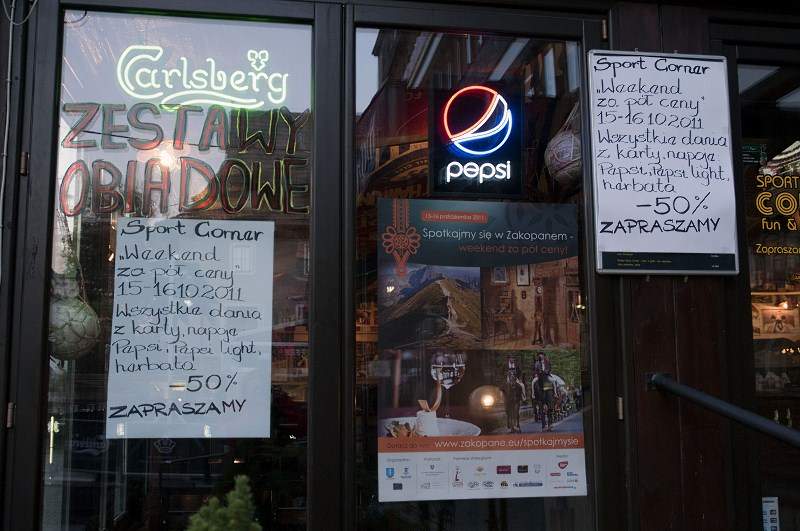 Carlsberg
ZESTAWY
OBIADOWE
Sport Corner
„Weekend
za pół ceny"
15-16 10 2011
Wszystkie dania
z karty, napoje
Papsi, Papsi light,
herbata
-50%
ZAPRASZAMY
pepsi
15-16 października 2011
Spotkajmy się w Zakopanem -
weekend za pół ceny!
www.zakopane.eu/spotkajmysie
Sport Corner
„Weekend
za pół ceny"
15-16 10 2011
Wszystkie dania
z karty, napoje
Papsi, Papsi light,
herbata
-50%
ZAPRASZAMY
SPORT
CO
fun &
Zaprasza